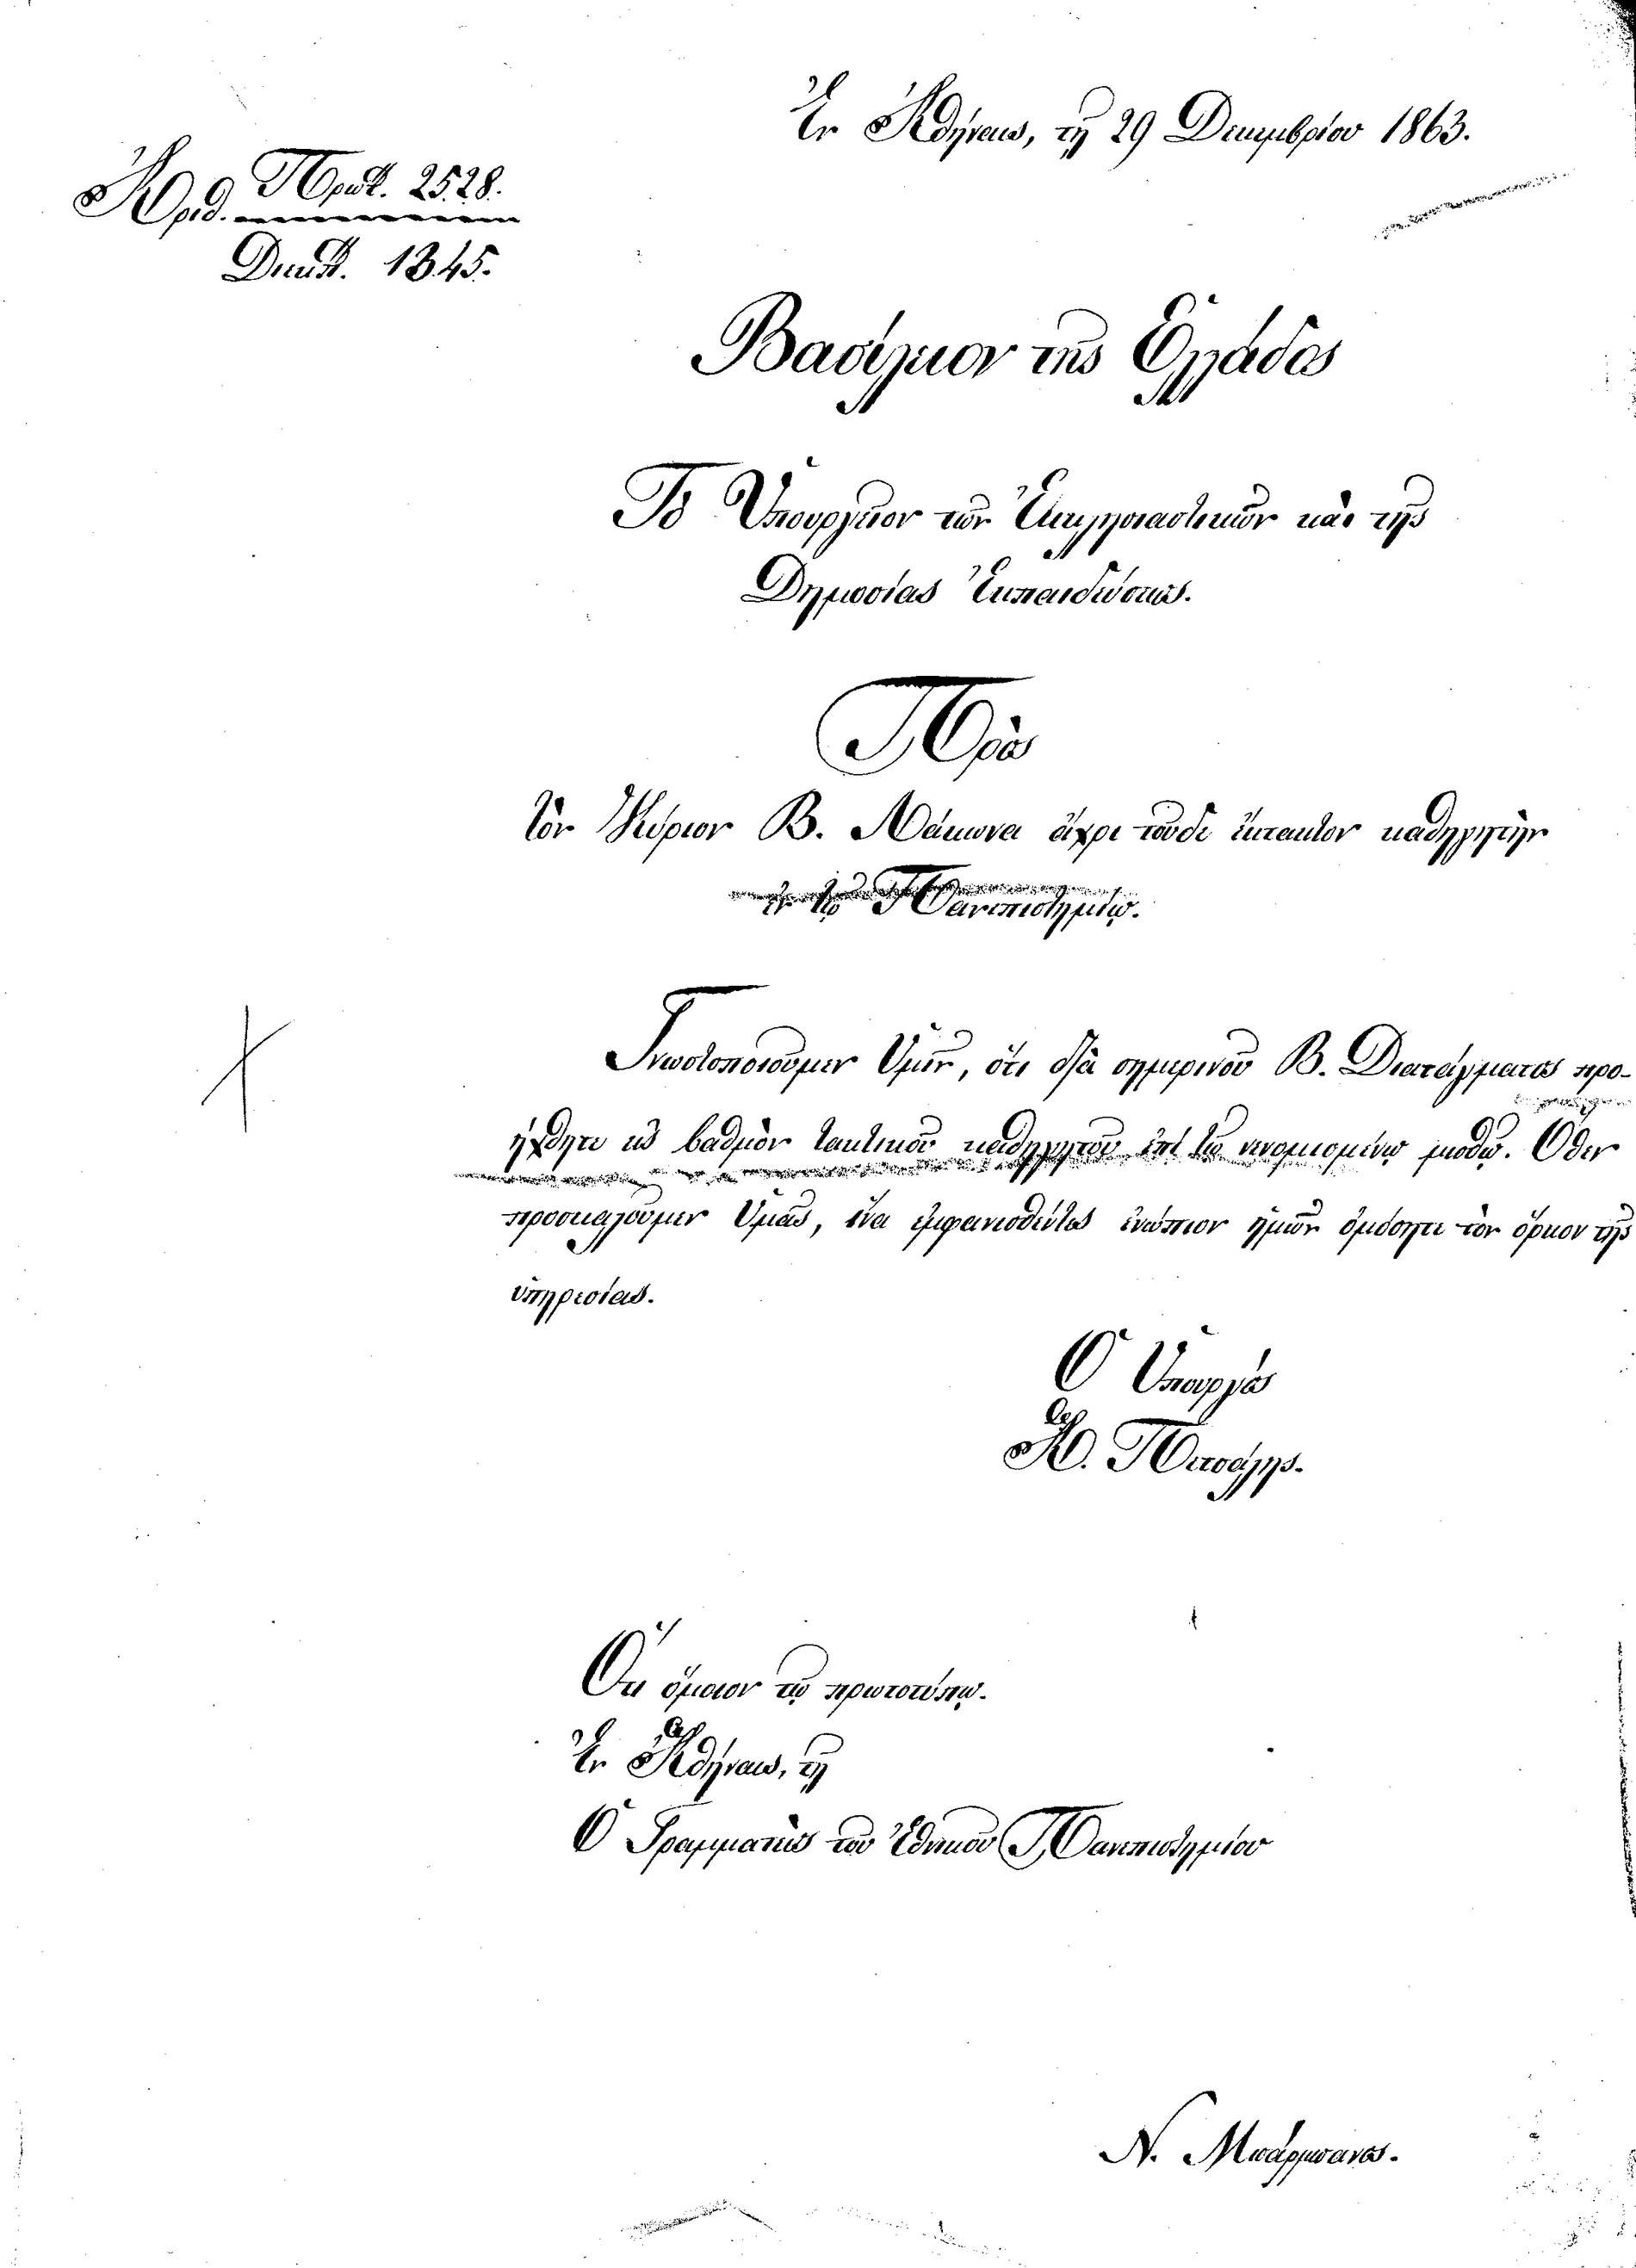 Ἐν Ἀθήναις, τῇ 29 Δεκεμβρίου 1863.
Ἀριθ. Πρωτ. 2528.
Διεκπ. 1345.
Βασίλειον τῆς Ἑλλάδος
Τὸ Ὑπουργεῖον τῶν Ἐκκλησιαστικῶν καὶ τῆς
Δημοσίας Ἐκπαιδεύσεως.
Πρὸς
τὸν Κύριον Β. Λάκωνα ἄχρι τοῦδε ἔκτακτον καθηγητὴν
ἐν τῷ Πανεπιστημίῳ.
Γνωστοποιοῦμεν Ὑμῖν, ὅτι διὰ σημερινοῦ Β. Διατάγματος προ-
ήχθητε εἰς βαθμὸν τακτικοῦ καθηγητοῦ ἐπὶ τῷ νενομισμένῳ μισθῷ. Ὅθεν
προσκαλοῦμεν Ὑμᾶς, ἵνα ἐμφανισθέντες ἐνώπιον ἡμῶν ὀμόσητε τὸν ὅρκον τῆς
ὑπηρεσίας.
Ὁ Ὑπουργὸς
Ἀ. Πετσάλης.
Ὅτι ὅμοιον τῷ πρωτοτύπῳ.
Ἐν Ἀθήναις, τῇ
Ὁ Γραμματεὺς τοῦ Ἐθνικοῦ Πανεπιστημίου
Ν.